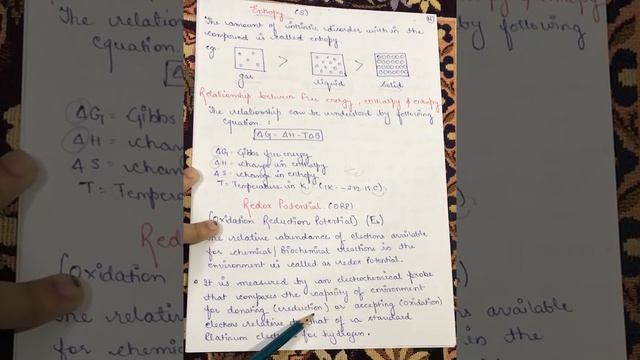 Entropy (S)
The amount of intrinsic disorder within the
compound is called entropy.
eg:
gas > liquid > solid
Relationship between free energy, enthalpy & entropy
The relationship can be understood by following
Equation:
ΔG = ΔH - TΔS
ΔG = Gibbs free energy
ΔH = change in enthalpy
ΔS = change in entropy
T = Temperature in K (1K = -272.15 C)
Redox Potential (ORP)
(Oxidation Reduction Potential) (Eh)
The relative abundance of electrons available
for chemical/biochemical reactions in the
environment is called as redox potential.
It is measured by an electrochemical probe
that compares the capacity of environment
for donating (reduction) or accepting (oxidation)
electrons relative to that of a standard
Platinum for hydrogen.